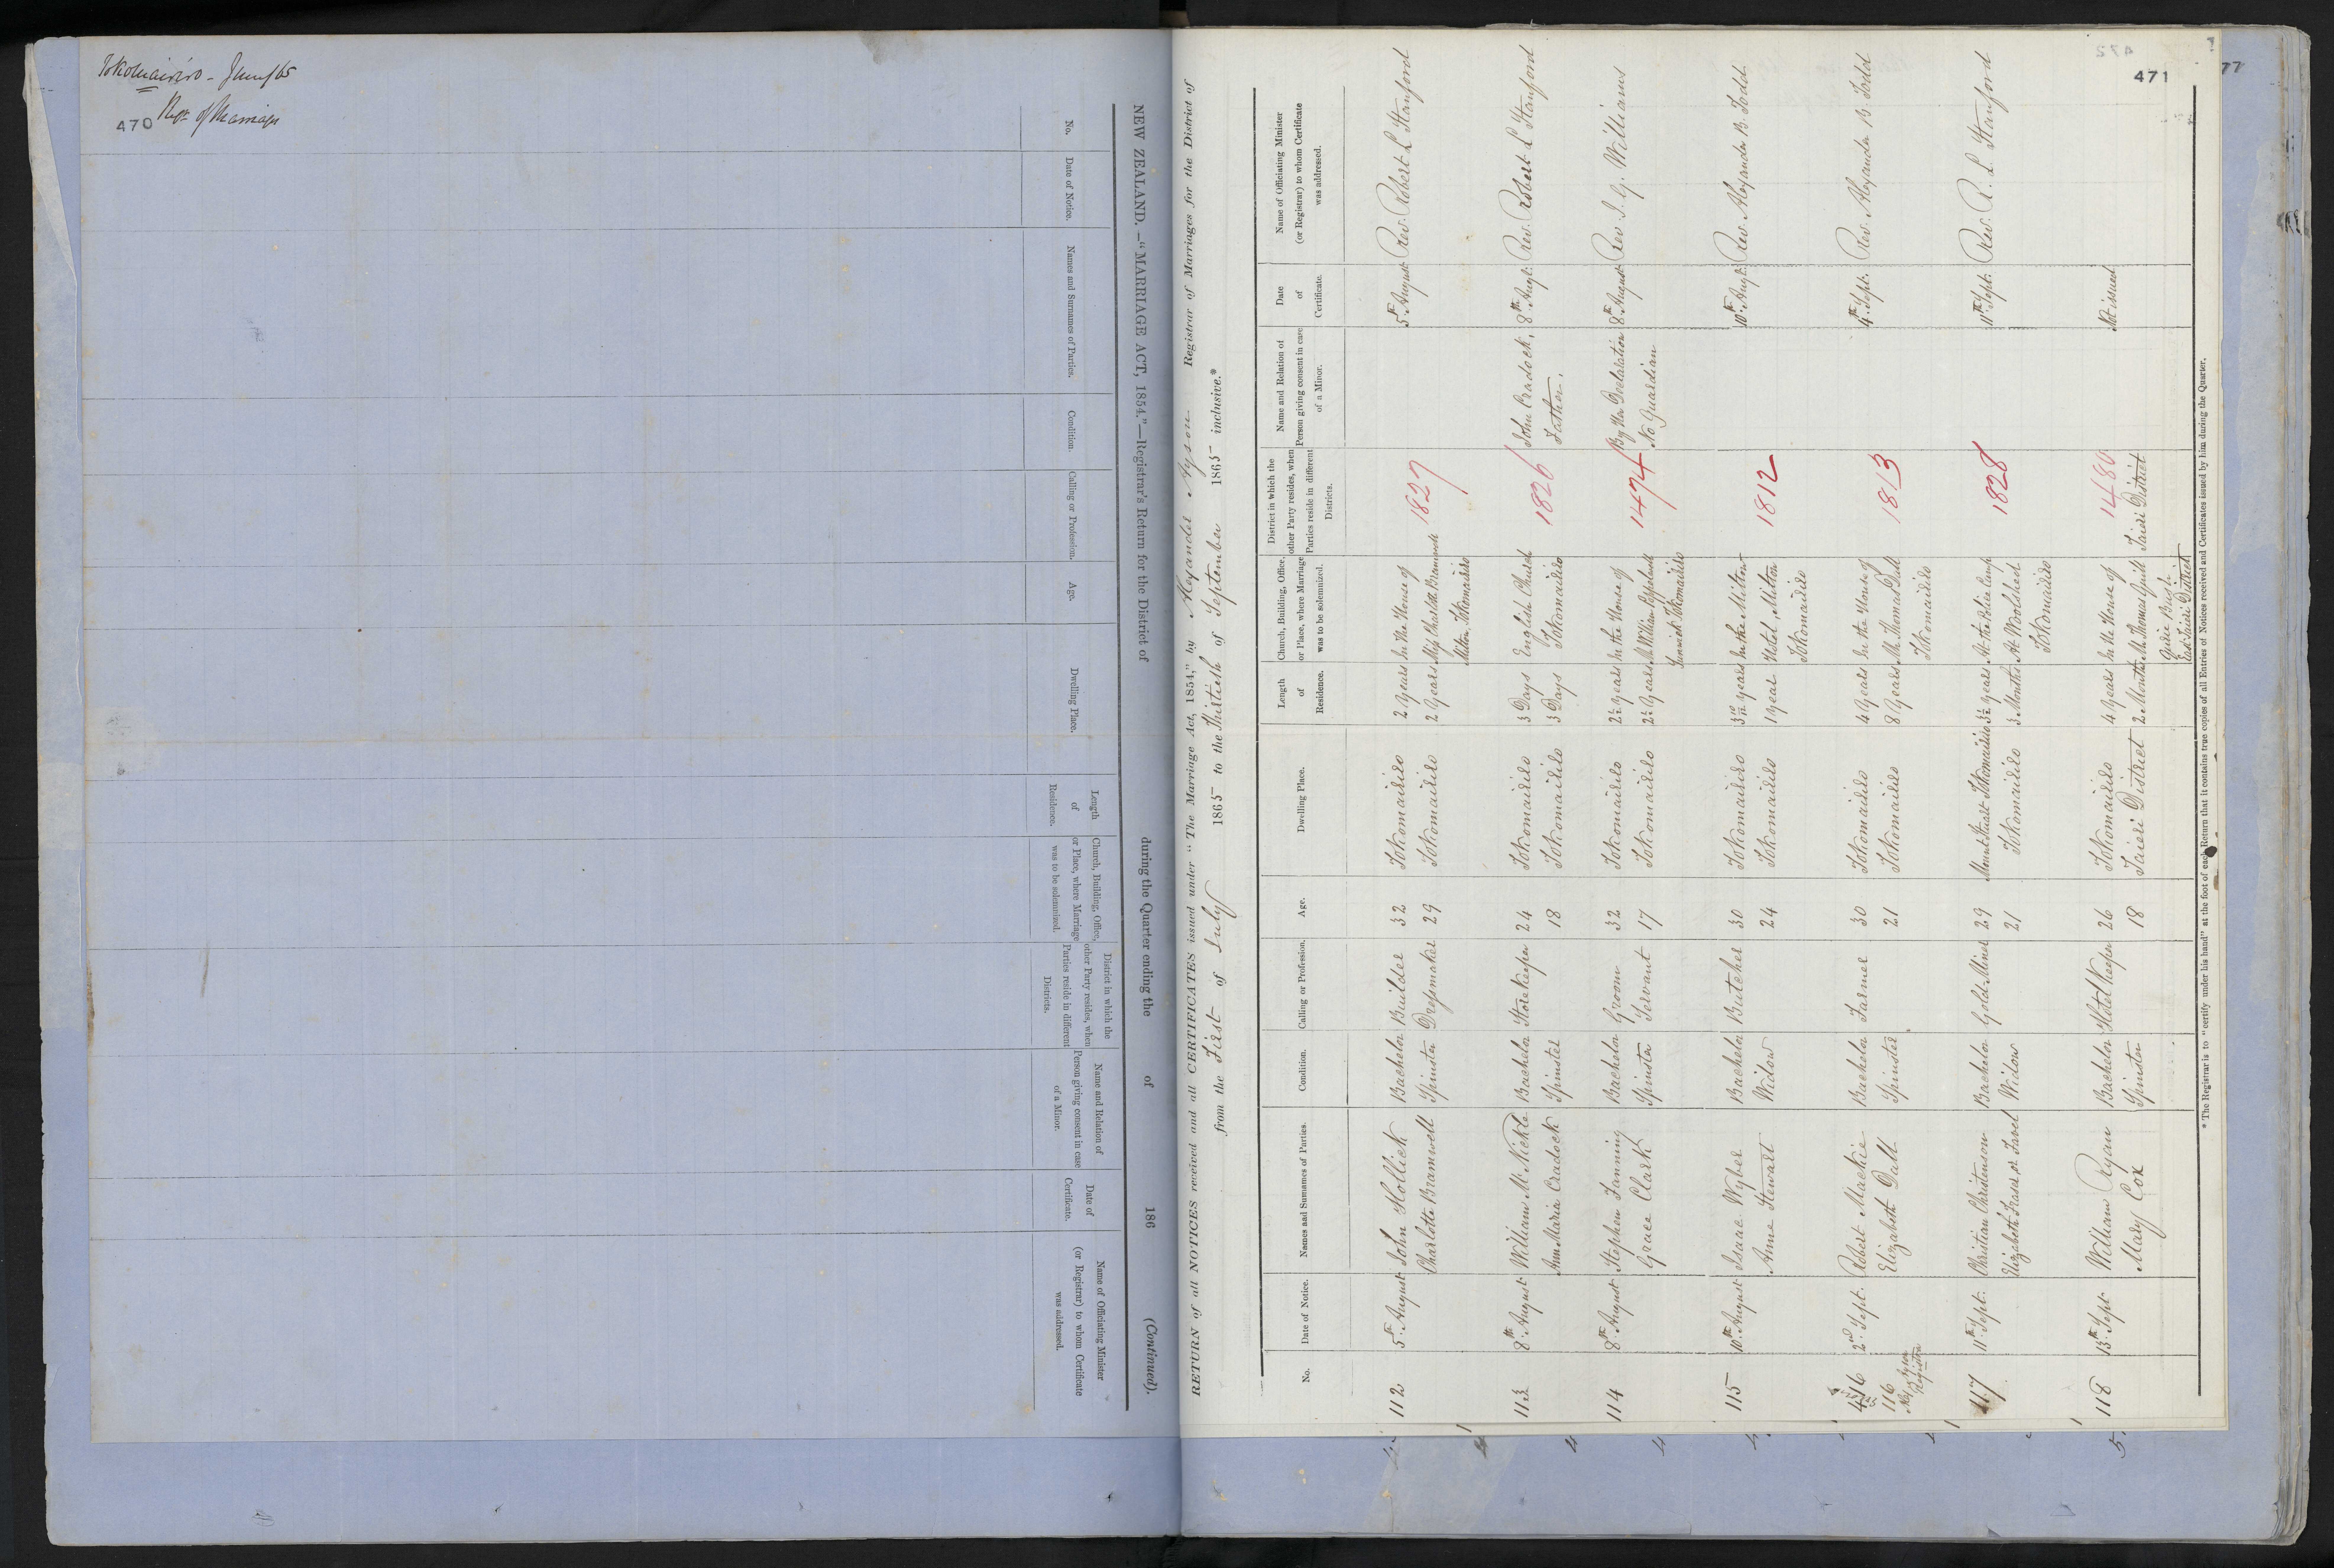 Tokomairiro - June/65
470
NEW ZEALAND.—"MARRIAGE ACT, 1854."—Registrar's Return for the District of during the Quarter ending the of 186 (Continued).
No.
Date of Notice.
Names and Surnames of Parties.
Condition.
Calling or Profession.
Age.
Dwelling Place.
Length of Residence.
Church, Building, Office, or Place, where Marriage was to be solemnized.
District in which the other Party resides, when Parties reside in different Districts.
Name and Relation of Person giving consent in case of a Minor.
Date of Certificate.
Name of Officiating Minister (or Registrar) to whom Certificate was addressed.
471
77
RETURN of all NOTICES received and all CERTIFICATES issued under "The Marriage Act, 1854," by Alexander Ayson Registrar of Marriages for the District of
from the First of July 1865 to the Thirtieth of September 1865 inclusive.*
No.
Date of Notice.
Names and Surnames of Parties.
Condition.
Calling or Profession.
Age.
Dwelling Place.
Length of Residence.
Church, Building, Office, or Place, where Marriage was to be solemnized.
District in which the other Party resides, when Parties reside in different Districts.
Name and Relation of Person giving consent in case of a Minor.
Date of Certificate.
Name of Officiating Minister (or Registrar) to whom Certificate was addressed.
112 5th August John Hollick Bachelor Builder 32 Tokomairiro 2 Years In the House of 1827 5th August Rev. Robert L Stanford
Charlotte Bramwell Spinster Dressmaker 29 Tokomairiro 2 Years Miss Charlotte Bramwell
Milton, Tokomairiro
113 8th August William McNickle Bachelor Storekeeper 24 Tokomairiro 3 Days English Church 1826 John Cradock, 8th Augt. Rev. Robert L Stanford
Ann Maria Cradock Spinster 18 Tokomairiro 3 Days Tokomairiro Father.
114 8th August Stephen Fanning Bachelor Groom 32 Tokomairiro 2½ years In the House of 1474 By Her Declaration 8th August Rev. J. G. Williams
Grace Clark Spinster Servant 17 Tokomairiro 2½ Years Mr William
No Guardian
Tokomairiro
115 10th August Isaac Wyber Bachelor Butcher 30 Tokomairiro years In the Milton 1812 10th Augt. Rev. Alexander B. Todd
Anne Stewart Widow 24 Tokomairiro 1 year Hotel, Milton
Tokomairiro
116 2nd Sept. Robert Mackie Bachelor Farmer 30 Tokomairiro 4 Years In the House of 1813 4th Sept. Rev. Alexander B. Todd
116 Elizabeth Dall Spinster 21 Tokomairiro 8 Years Mr. Thomas Dall
Alex Ayson Tokomairiro
Registrar
117 11th Sept. Christian Christenson Bachelor Gold-Miner 29 Mount Stuart Tokomairiro 3½ years At the Police Camp 1828 11th Sept. Rev. R. L. Stanford
Elizabeth Fraser or Favel Widow 21 Tokomairiro 3 Months At Woolshed
Tokomairiro
118 13th Sept. William Ryan Bachelor Hotel Keeper 26 Tokomairiro 4 years In the House of 1480 Not issued
Mary Cox Spinster 18 Taieri District 2 Months Mr Thomas Taieri District
Bush
East Taieri District
* The Registrar is to "certify under his hand" at the foot of each Return that it contains true copies of all Entries of Notices received and Certificates issued by him during the Quarter.